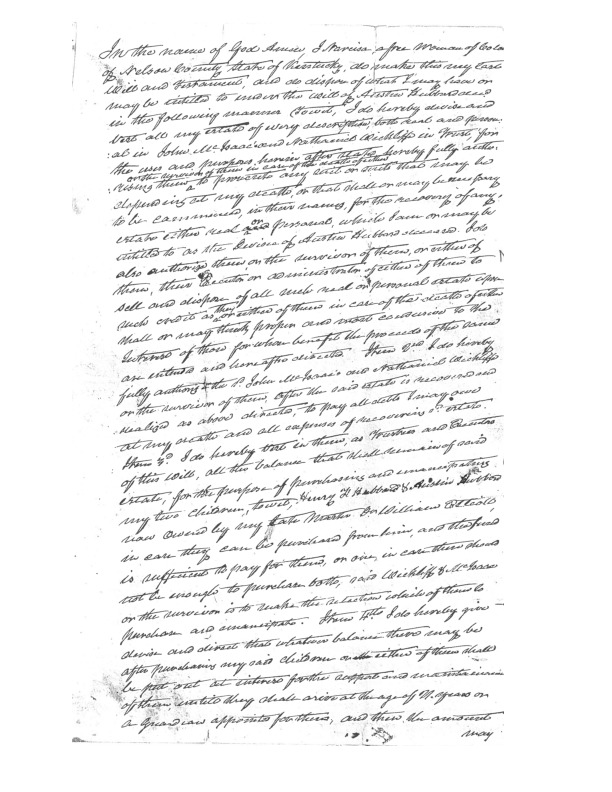 In the name of God Amen, I Narcissa a free Woman of Colo
of Nelson County, State of Kentucky, do make this my last
Will and Testament, and do dispose of what I may have or
may be intitled to under the will of Austin Hubbard decd
in the following manner (Towit,) I do hereby devise and
vest all my estate of every description, both real and person
al in John McIsaac and Nathaniel Wickliff in Trust, for
the uses and purposes herein after stated, hereby fully autho-
or the survivor of them in case of the death of either
rising them to prosecute any suit or suits that may be
depending at my death, or that shall or may be necessary
to be commenced, in their names, for the recovery of any
estate either real or personal, which I am or may be
intitled to as the Devisee of Austin Hubbard deceased. I do
also authorize them or the survivor of them, or either of
them, their Executor or administrator of either of them to
sell and dispose of all such real or personal estate upon
such credit as they or either of them in case of the death of either
shall or may think proper and most conducive to the
Interest of those for whose benefit the proceeds of the same
are intended and hereafter directed. Item 2nd I do hereby
fully authorize the sd. John McIsaac and Nathaniel Wickliff
or the survivor of them, after the said estate is recovered and
realized as above directed, to pay all debts I may owe
at my death and all expenses of recovering sd. estate.
Item 3d. I do hereby vest in them, as Trustees and Executors
of this will, all the balance that shall remain of said
estate, for the purpose of purchasing and emancipating
my two children, towit, Henry H Hubbard & Austin Hubbard
now owned by my late Master Dr William Elliott,
in case they can be purchased from him, and the fund
is sufficient to pay for them, or one, in case there should
not be enough to purchase both, said Wickliff & McIsaac
or the survivor is to make the selection which of them to
purchase and emancipate. Item 4th I do hereby give
devise and direct that whatever balance there may be
after purchasing my said children or either of them shall
be put out at interest for the support and maintenance
of them, untill they shall arive at the age of 21 years or
a Guardian appointed for them, and then the amount
may